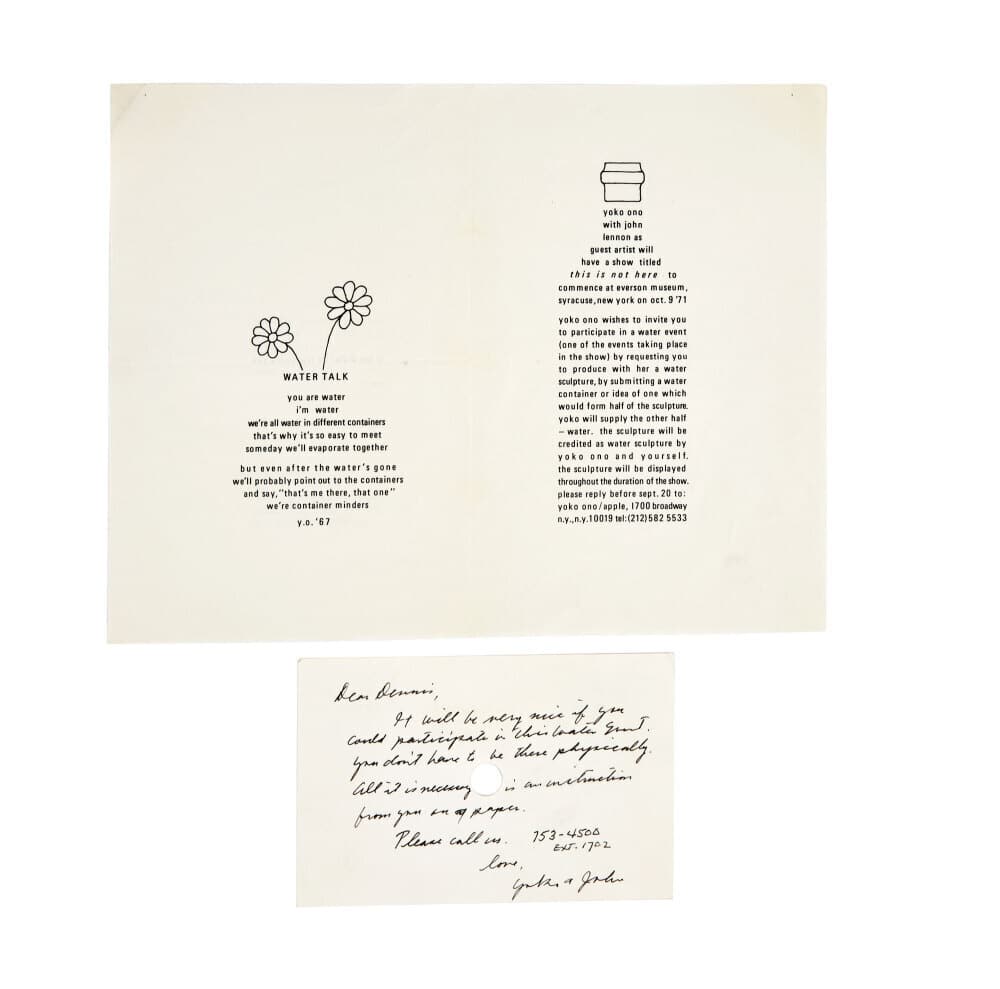 WATER TALK
you are water
i'm water
we're all water in different containers
that's why it's so easy to meet
someday we'll evaporate together
but even after the water's gone
we'll probably point out to the containers
and say, "that's me there, that one"
we're container minders
y.o. '67
yoko ono
with john
lennon as
guest artist will
have a show titled
this is not here to
commence at everson museum,
syracuse, new york on oct. 9 '71
yoko ono wishes to invite you
to participate in a water event
(one of the events taking place
in the show) by requesting you
to produce with her a water
sculpture, by submitting a water
container or idea of one which
would form half of the sculpture.
yoko will supply the other half
– water. the sculpture will be
credited as water sculpture by
yoko ono and yourself.
the sculpture will be displayed
throughout the duration of the show.
please reply before sept. 20 to:
yoko ono/apple, 1700 broadway
n.y., n.y. 10019 tel: (212) 582 5533
Dear Dennis,
It will be very nice if you
could participate in this water Event.
you don't have to be there physically.
All it is necessary is an instruction
from you on paper.
Please call us. 753-4500
EXT. 1702
love,
Yoko & John